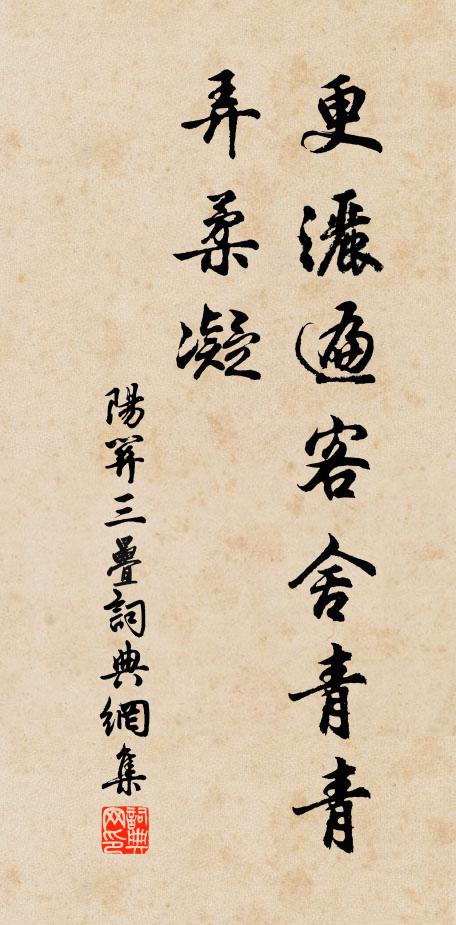 更灑遍客舍青青
弄柔凝
陽關三疊詞典網集
詞典网印